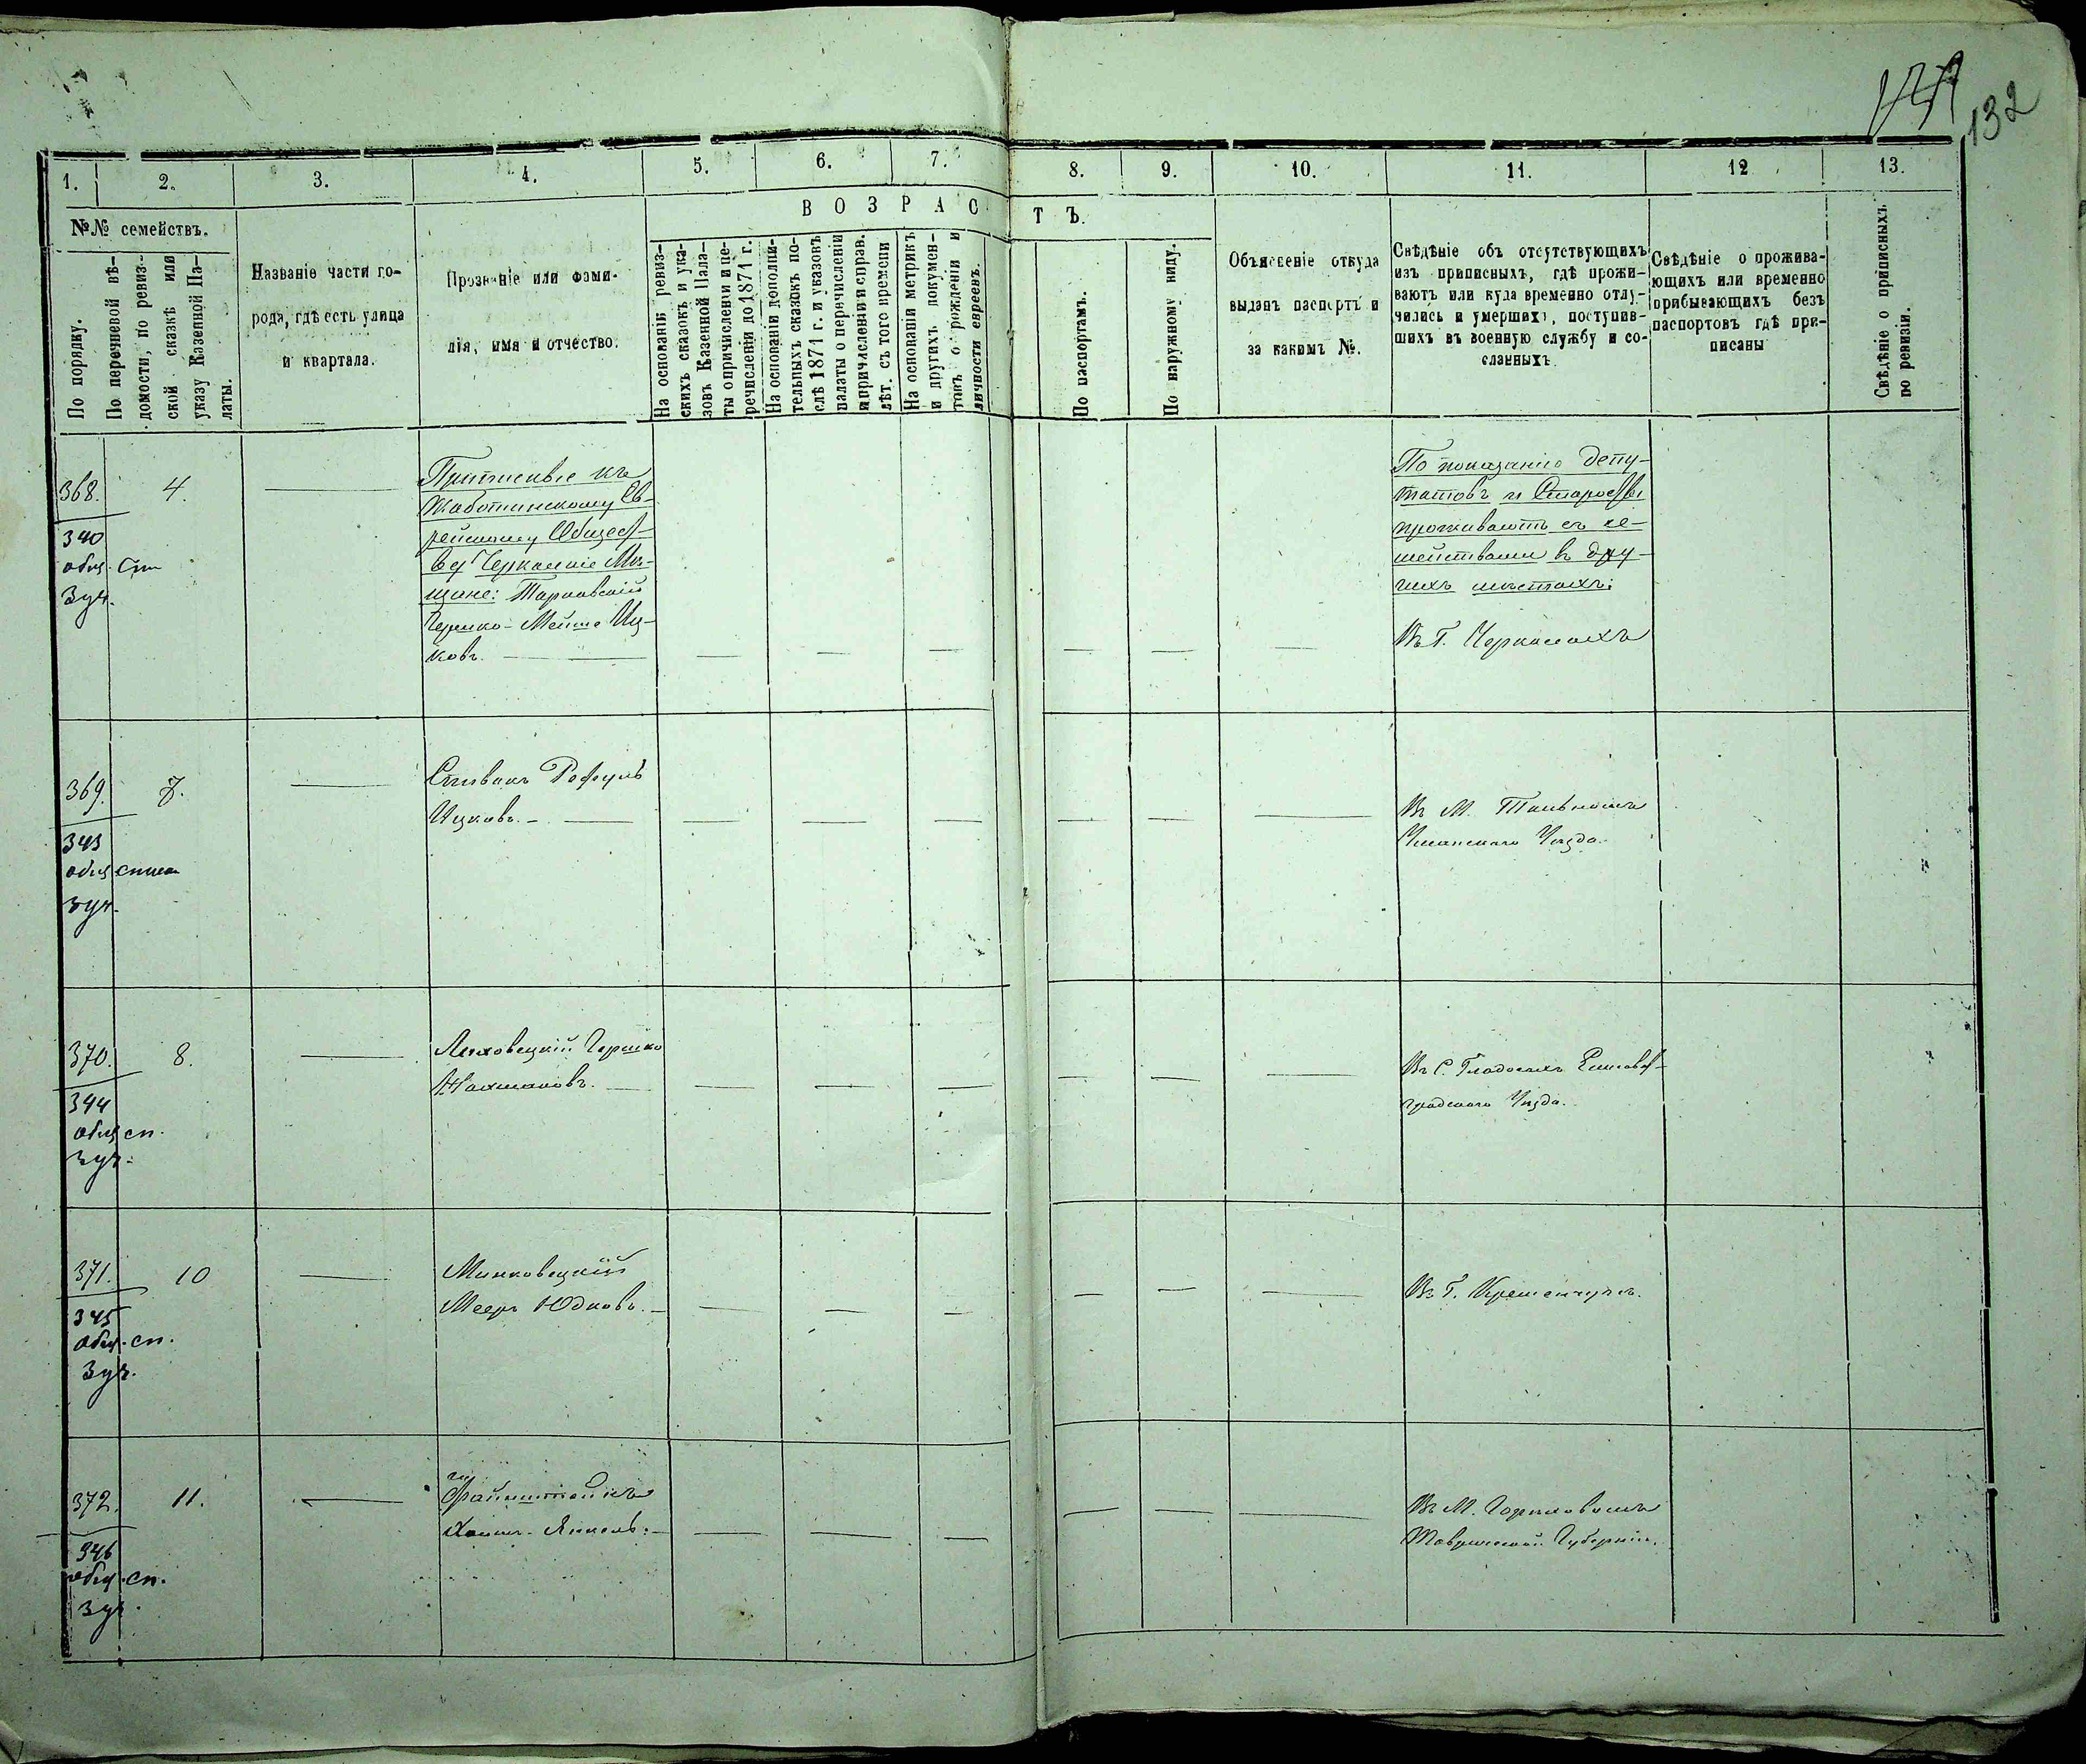 132
1.
2.
3.
4.
5.
6.
7.
8.
9.
10.
11.
12
13.
№№ семействъ.
По порядку.
По перечневой вѣ-
домости, по ревиз-
ской сказкѣ или
указу Казенной Па-
латы.
Названіе части го-
рода, гдѣ есть улица
и квартала.
Прозваніе или фами-
лія, имя и отчество.
ВОЗРАСТЪ.
На основаніи ревиз-
скихъ сказокъ и ука-
зовъ Казенной Пала-
ты о причисленіи и пе-
речисленіи до 1871 г.
На основаніи дополни-
тельныхъ сказокъ по-
слѣ 1871 г. и указовъ
палаты о перечисленіи
и причисленіи и справ.
лѣт. съ того времени
На основаніи метрикъ
и другихъ докумен-
товъ о рожденіи и
личности евреевъ.
По паспортамъ.
По наружному виду.
Объясненіе откуда
выданъ паспортъ и
за какимъ №.
Свѣдѣніе объ отсутствующихъ
изъ приписныхъ, гдѣ прожи-
ваютъ или куда временно отлу-
чились и умершихъ, поступив-
шихъ въ военную службу и со-
сланныхъ.
Свѣдѣніе о прожива-
ющихъ или временно
прибывающихъ безъ
паспортовъ гдѣ при-
писаны
Свѣдѣніе о приписныхъ
по ревизіи.
368.
340
общ. сп
3 уч.
4.
Приписные къ
Жаботинскому Ев-
рейскому Общест-
ву Черкаскіе Мѣ-
щане: Тарнавскій
Гершко-Мейше Иц-
ковъ.
По показанію депу-
татовъ и Старосты
проживаютъ съ се-
мействами въ дру-
гихъ мѣстахъ:
Въ Г. Черкасахъ
369.
343
общ списка
3 уч.
7.
Спивакъ Рафулъ
Ицковъ.
Въ М. Тальномъ
Уманскаго Уѣзда.
370.
344
общ сп.
3 уч.
8.
Ляховецкій Гершко
Нахмановъ.
Въ С. Гладосахъ Елисавет-
градскаго Уѣзда.
371.
345
общ. сп.
3 уч.
10
Минковецкій
Мееръ Юдковъ.
Въ Г. Кременчугѣ.
372.
346
общ. сп.
3 уч.
11.
Файнштейнъ
Хаимъ-Янкель.
Въ М.
Таврической Губерніи.